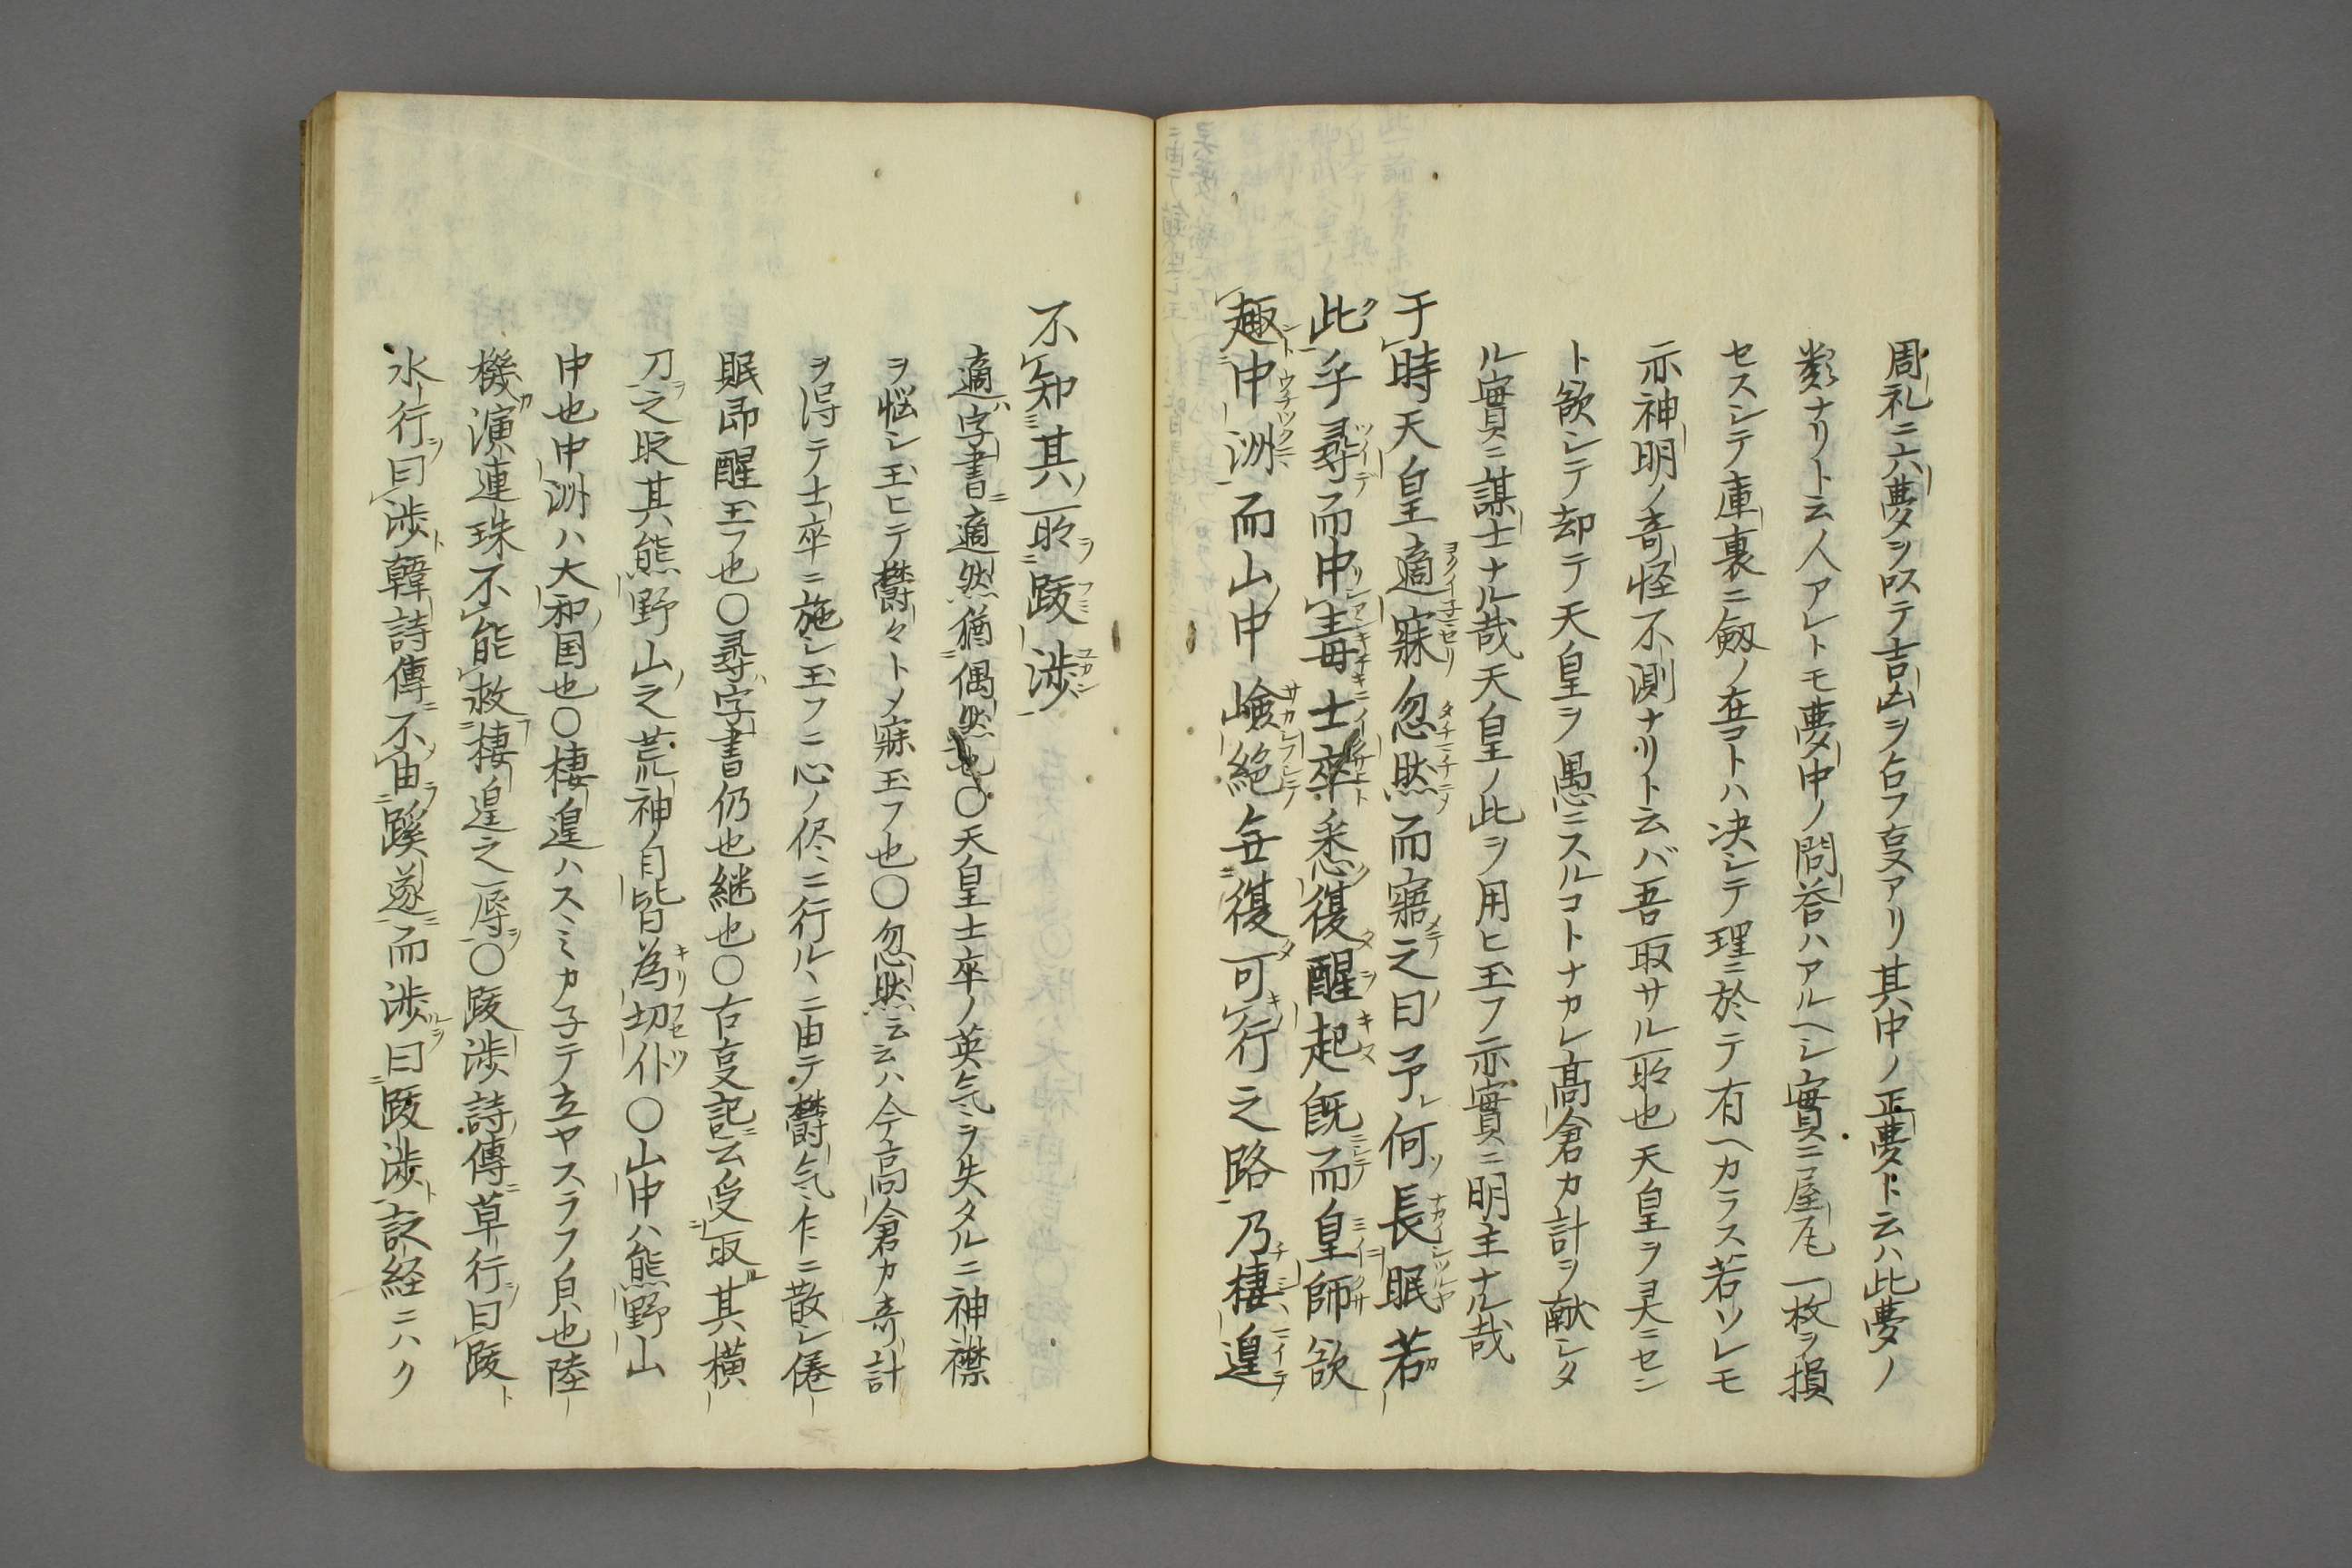 周礼ニ六夢ヲ以テ吉凶ヲ占フ叓アリ其中ノ正夢ト云ハ此夢ノ
類ナリト云人アレトモ夢中ノ問答ハアルヘシ實ニ屋瓦一枚ヲ損
セスシテ庫裏ニ劔ノ在コトハ决シテ理ニ於テ有ヘカラス若ソレモ
亦神明ノ奇怪不測ナリト云バ吾取サル所也天皇ヲ灵ニセン
ト欲シテ却テ天皇ヲ愚ニスルコトナカレ髙倉カ計ヲ献シタ
ル實ニ謀士ナル哉天皇ノ此ヲ用ヒ玉フ亦實ニ明主ナル哉
于時天皇適寐忽然而寤之曰予何長眠若
此乎尋而中毒士卒悉復醒起既而皇師欲
趣中洲而山中嶮絶無復可行之路乃棲遑
不知其所跋渉
適字書適然猶偶然也〇天皇士卒ノ英気ヲ失タルニ神襟
ヲ悩シ玉ヒテ欝々トメ寐玉フ也〇忽然云云ハ今高倉カ奇計
ヲ得テ士卒ニ施シ玉フニ心ノ侭ニ行ルヽニ由テ欝気乍ニ散シ倦
眠即醒玉フ也〇尋字書仍也継也〇古叓記云受取其横
刀之时其熊野山之荒神自皆為切仆〇山中ハ熊野山
中也中洲ハ大和国也〇棲遑ハスミカ子テ立ヤスラフノ皃也陸
機演連珠不能救棲遑之辱〇跋渉詩傳草行曰跋
水行曰渉韓詩傳不由蹊遂而渉曰跋渉訳経ニハク